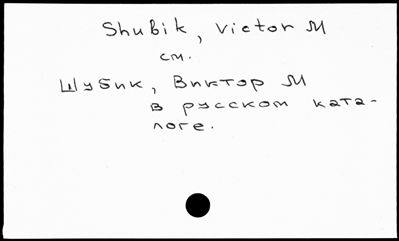 Shubik, Victor M
см.
Шубик, Виктор М
в русском ката-
логе.